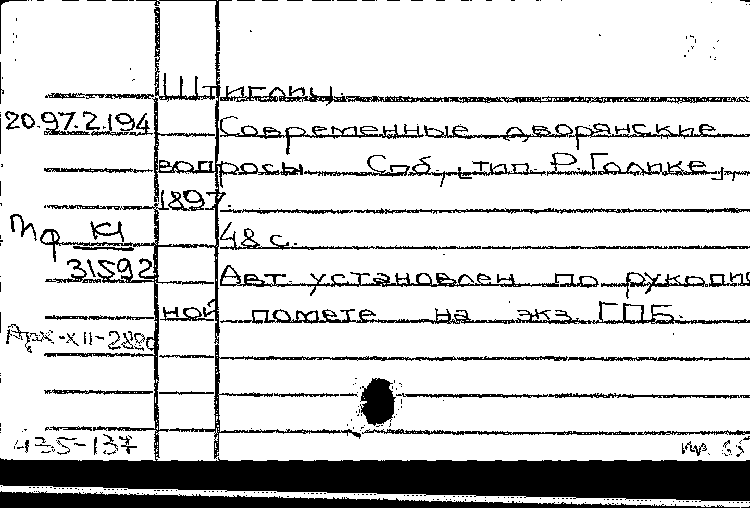 Штиглиц.
20.97.2.194 Современные дворянские
вопросы. Спб., [тип. Р. Голике],
1897.
48 с.
Мф К1
31592
Авт. установлен по рукопис
ной помете на экз. ГПБ.
Арх-XII-2880
435-137
пр. 65